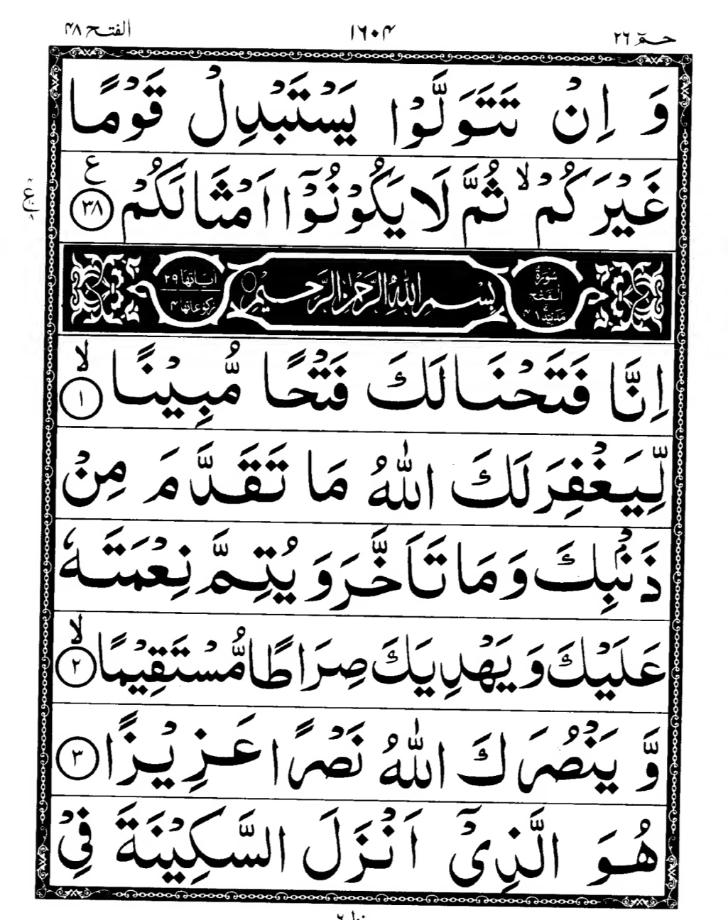 حٰمٓ ۲۶ ۱۶۰۴ الفتح ۴۸
وَ اِنْ تَتَوَلَّوْا يَسْتَبْدِلْ قَوْمًا
غَيْرَكُمْ ۙ ثُمَّ لَا يَكُوْنُوْٓا اَمْثَالَكُمْ ﴿۳۸﴾ ع
ع
سُوْرَةُ الْفَتْحِ مَدَنِيَّةٌ بِسْمِ اللّٰهِ الرَّحْمٰنِ الرَّحِيْمِ اٰيَاتُهَا ۲۹ رُكُوْعَاتُهَا ۴
اِنَّا فَتَحْنَا لَكَ فَتْحًا مُّبِيْنًا ۙ﴿۱﴾
لِّيَغْفِرَ لَكَ اللّٰهُ مَا تَقَدَّمَ مِنْ
ذَنْۢبِكَ وَ مَا تَاَخَّرَ وَ يُتِمَّ نِعْمَتَهٗ
عَلَيْكَ وَ يَهْدِيَكَ صِرَاطًا مُّسْتَقِيْمًا ۙ﴿۲﴾
وَّ يَنْصُرَكَ اللّٰهُ نَصْرًا عَزِيْزًا ﴿۳﴾
هُوَ الَّذِيْٓ اَنْزَلَ السَّكِيْنَةَ فِيْ